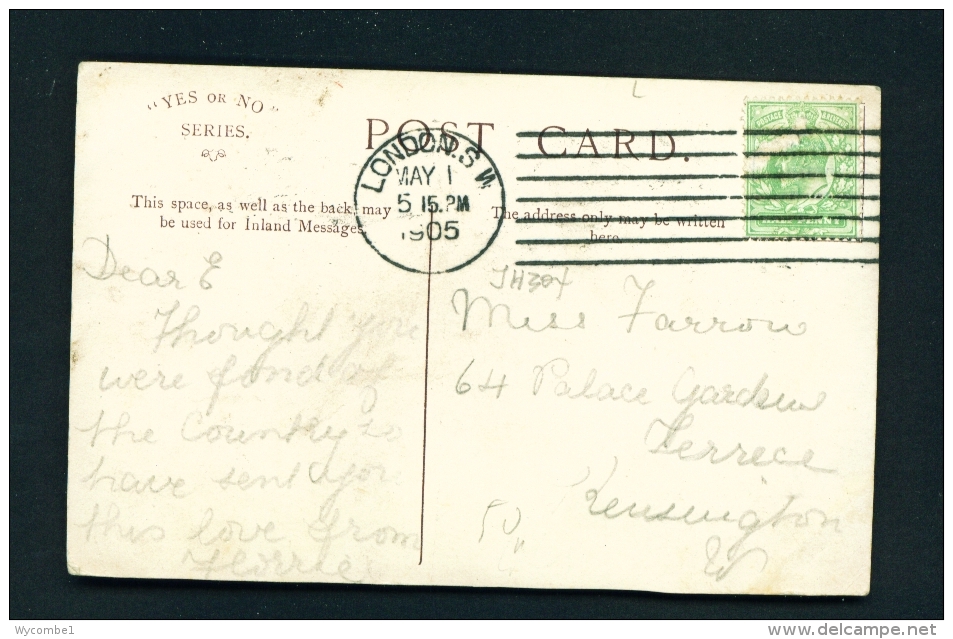 "YES OR NO"
SERIES.
POST CARD.
LONDON. S.W.
MAY 1
5 15. PM
1905
This space, as well as the back, may
be used for Inland Messages.
The address only may be written
here.
Dear E
Thought you
were fond of
the Country so
have sent you
this love from
Florrie
JH304
Miss Farrow
64 Palace Gardens
Terrece
Kensington
W
50
POSTAGE & REVENUE
Wycombe1
www.delcampe.net